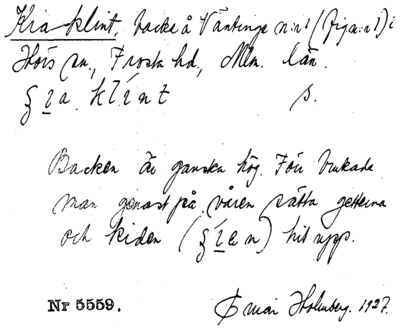 Kiaklint, backe å Väntinge n:o 1 (fig n:o 1) i
Hörs sn., Frosta hd, Mlm. län.
klint s.
Backen är ganska hög. Förr brukade
man genast på våren sätta getterna
och kiden hit upp.
Nr 5559. Holmberg. 1927.